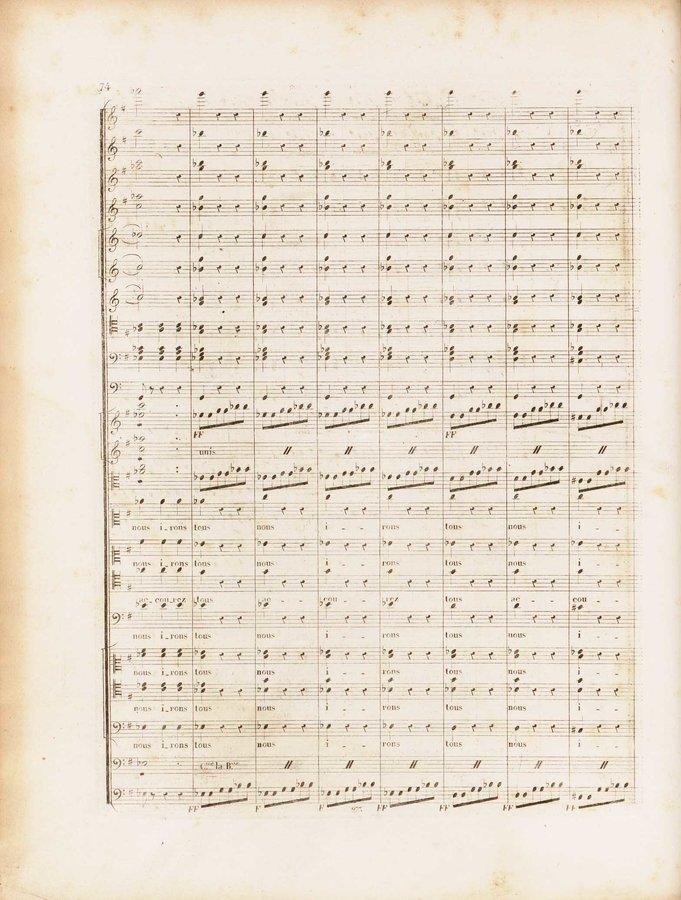 74
FF FF
unis
nous i_rons tous nous i - - rons tous nous i -
nous i_rons tous nous i - - rons tous nous i -
ac_cou_rez tous ac - - cou - - rez tous ac - - cou - -
nous i_rons tous nous i - - rons tous nous i -
nous i_rons tous nous i - - rons tous nous i -
nous i_rons tous nous i - - rons tous nous i -
nous i_rons tous nous i - - rons tous nous i -
la B.
FF F F F FF FF FF